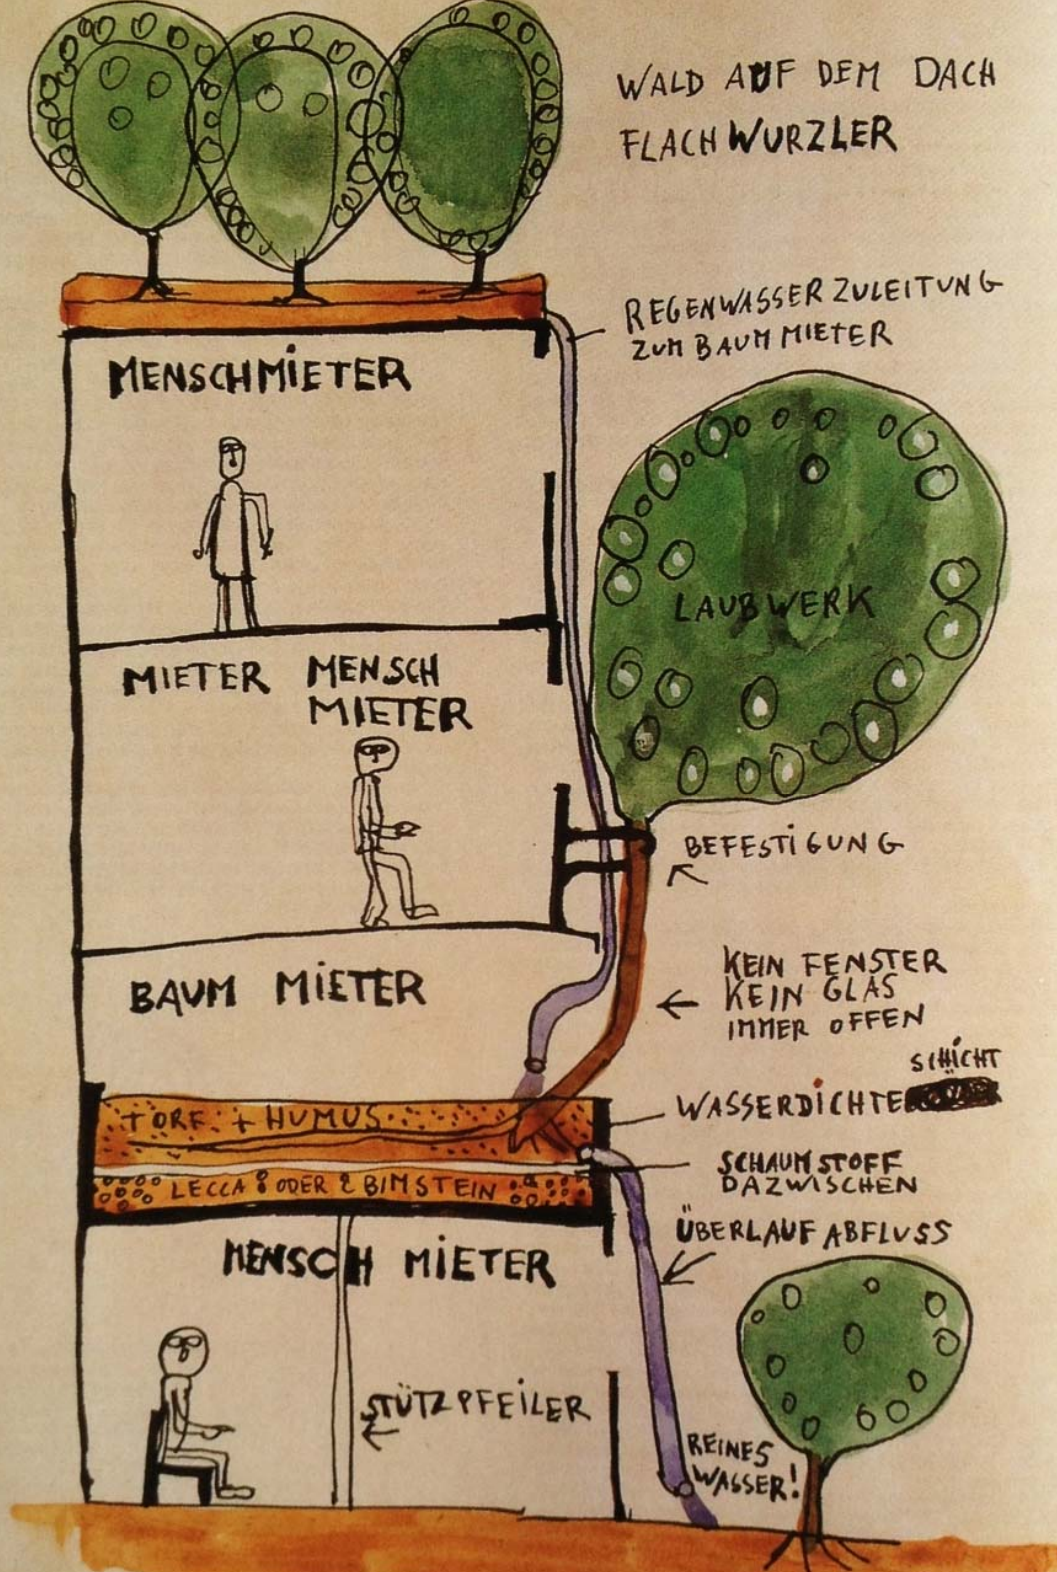 WALD AUF DEM DACH
FLACHWURZLER
REGENWASSERZULEITUNG
ZUM BAUM MIETER
MENSCHMIETER
LAUBWERK
MIETER MENSCH
MIETER
BEFESTIGUNG
KEIN FENSTER
KEIN GLAS
IMMER OFFEN
BAUM MIETER
SCHICHT
WASSERDICHTE
TORF + HUMUS
SCHAUMSTOFF
DAZWISCHEN
LECCA ODER BIMSTEIN
ÜBERLAUF ABFLUSS
MENSCH MIETER
STÜTZPFEILER
REINES
WASSER!